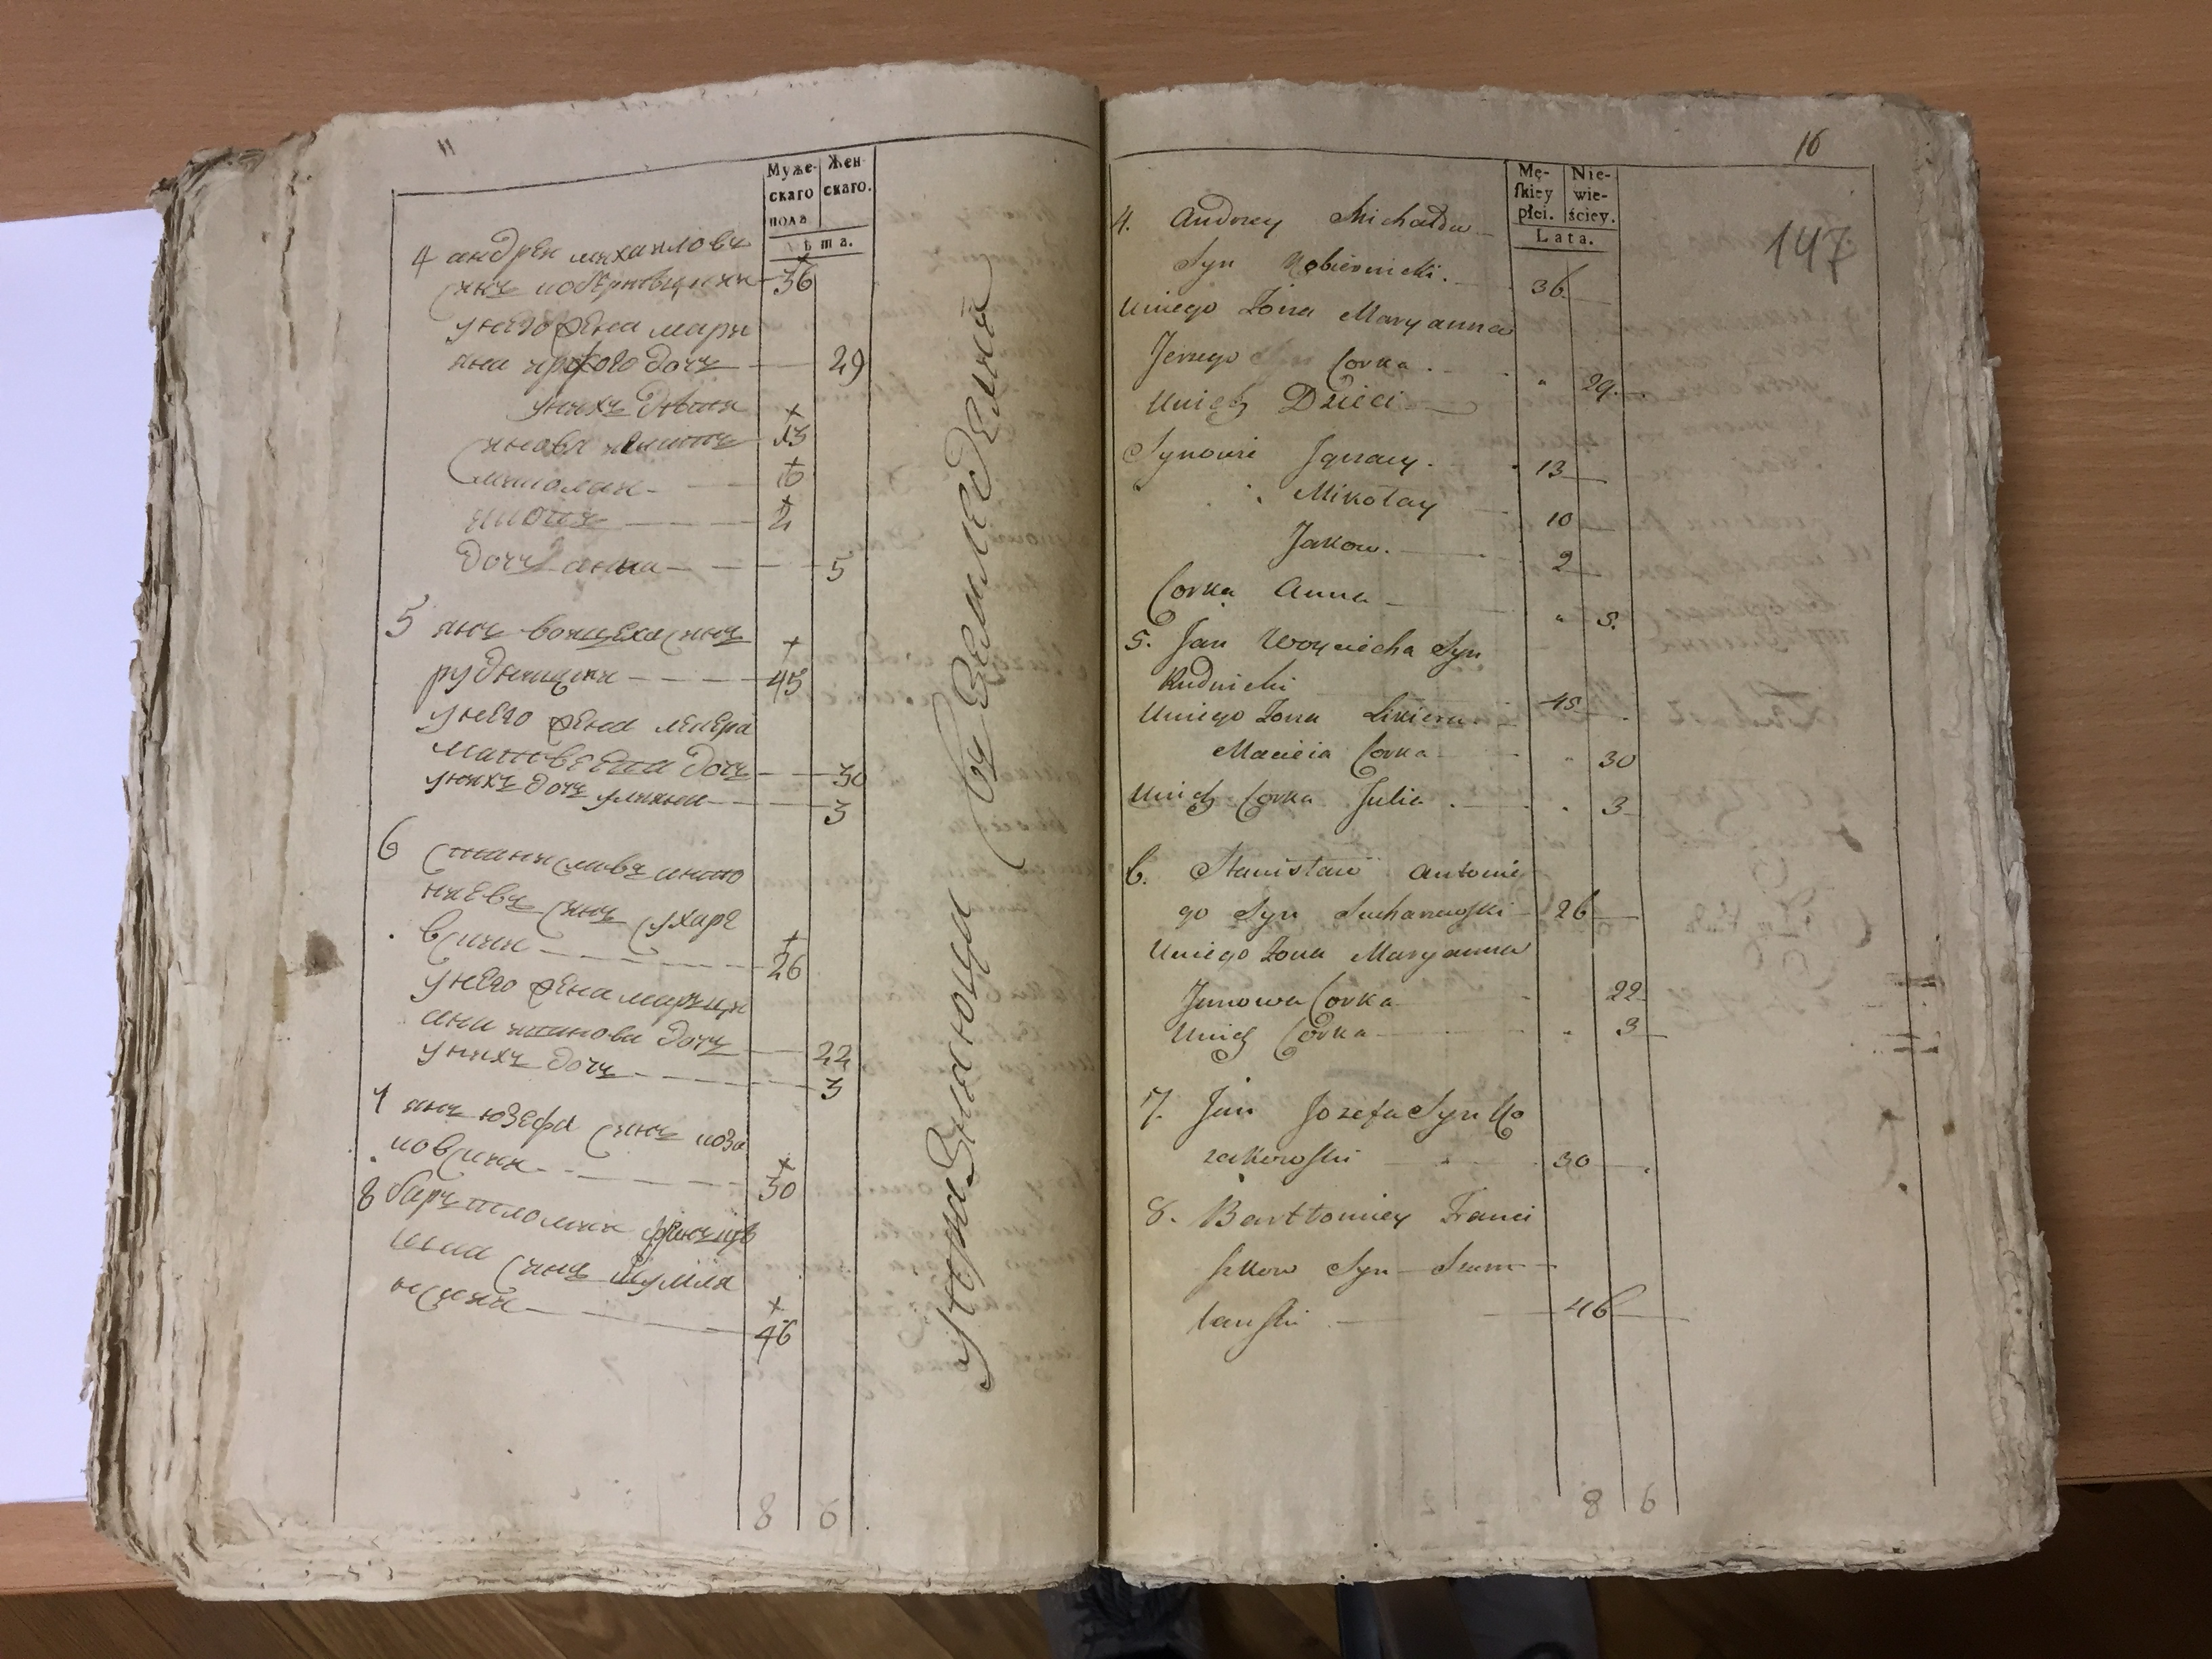 11
Муже-
скаго
пола
Жен
скаго.
Лѣта.
4 андрей михаиловъ
сынъ
36
у него жена марья
яна дочь 29
у нихъ дѣти
сыновя 13
10
2
дочь анна 5
5 янъ войцеха сынъ
рудницки 45
у него жена
матвеева дочь 30
у нихъ дочь улияна 3
6 станиславъ анто
ниевъ сынъ сухаре
вски 26
у него жена марци
ана дочь 22
у нихъ дочь 3
7 янъ юзефа сынъ коза
ковски 30
8 бартломей
сынъ шумля
нски 46
8 6
16
147
Mę-
ſkiey
płci.
Nie-
wie-
ściey.
Lata.
4. Andrzey Michała
Syn Kobiernicki. 36
Uniego Żona Maryanna
Jerzego Corka. " 29.
Unich Dzieci
Synowie Jgnacy. 13
Mikołay 10
Jakow. 2
Corka Anna " 5.
5. Jan Woyciecha Syn
Rudnicki 45
Uniego Zona
Macieia Corka " 30
Unich Corka Julia. " 3
6. Stanisław Antonie
go Syn Sucharewſki 26
Uniego Zona Maryanna
Janowa Corka 22
Unich Corka " 3
7. Jan Jozefa Syn Ko
zakowſki 30
8. Bartłomiey Franci
ſzkow Syn Szum
lanſki 46
8 6